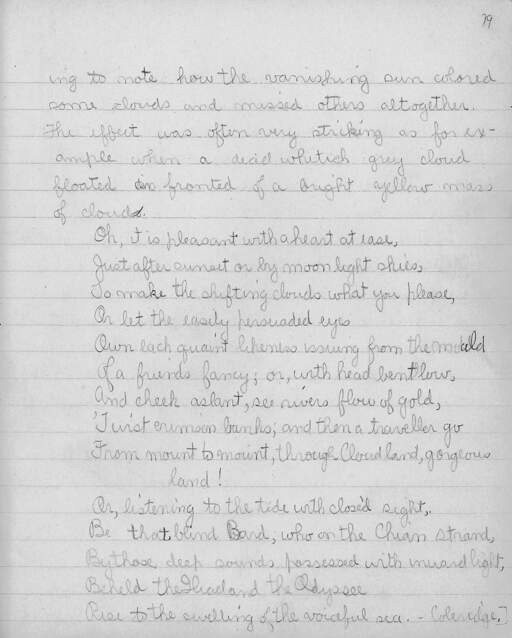 79
ing to note how the vanishing sun colored
some clouds and missed others altogether.
The effect was often very striking as for ex-
ample when a decid whitish grey cloud
floated in fronted of a bright yellow mass
of clouds.
Oh, it is pleasant with a heart at ease,
Just after sunset or by moonlight skies,
To make the shifting clouds what you please,
Or let the easily persuaded eyes
Own each quaint likeness issuing from the mould
Of a friends fancy; or, with head bent low,
And cheek aslant, see rivers flow of gold,
'Twixt crimson banks; and then a traveller go
From mount to mount, through Cloudland, gorgeous
land!
Or, listening to the tide with closed sight,
Be that blind Bard, who on the Chian strand,
By those deep sounds possessed with inward light,
Beheld the Iliad and the Odyssee
Rise to the swelling of the voiceful sea. - Coleridge.]